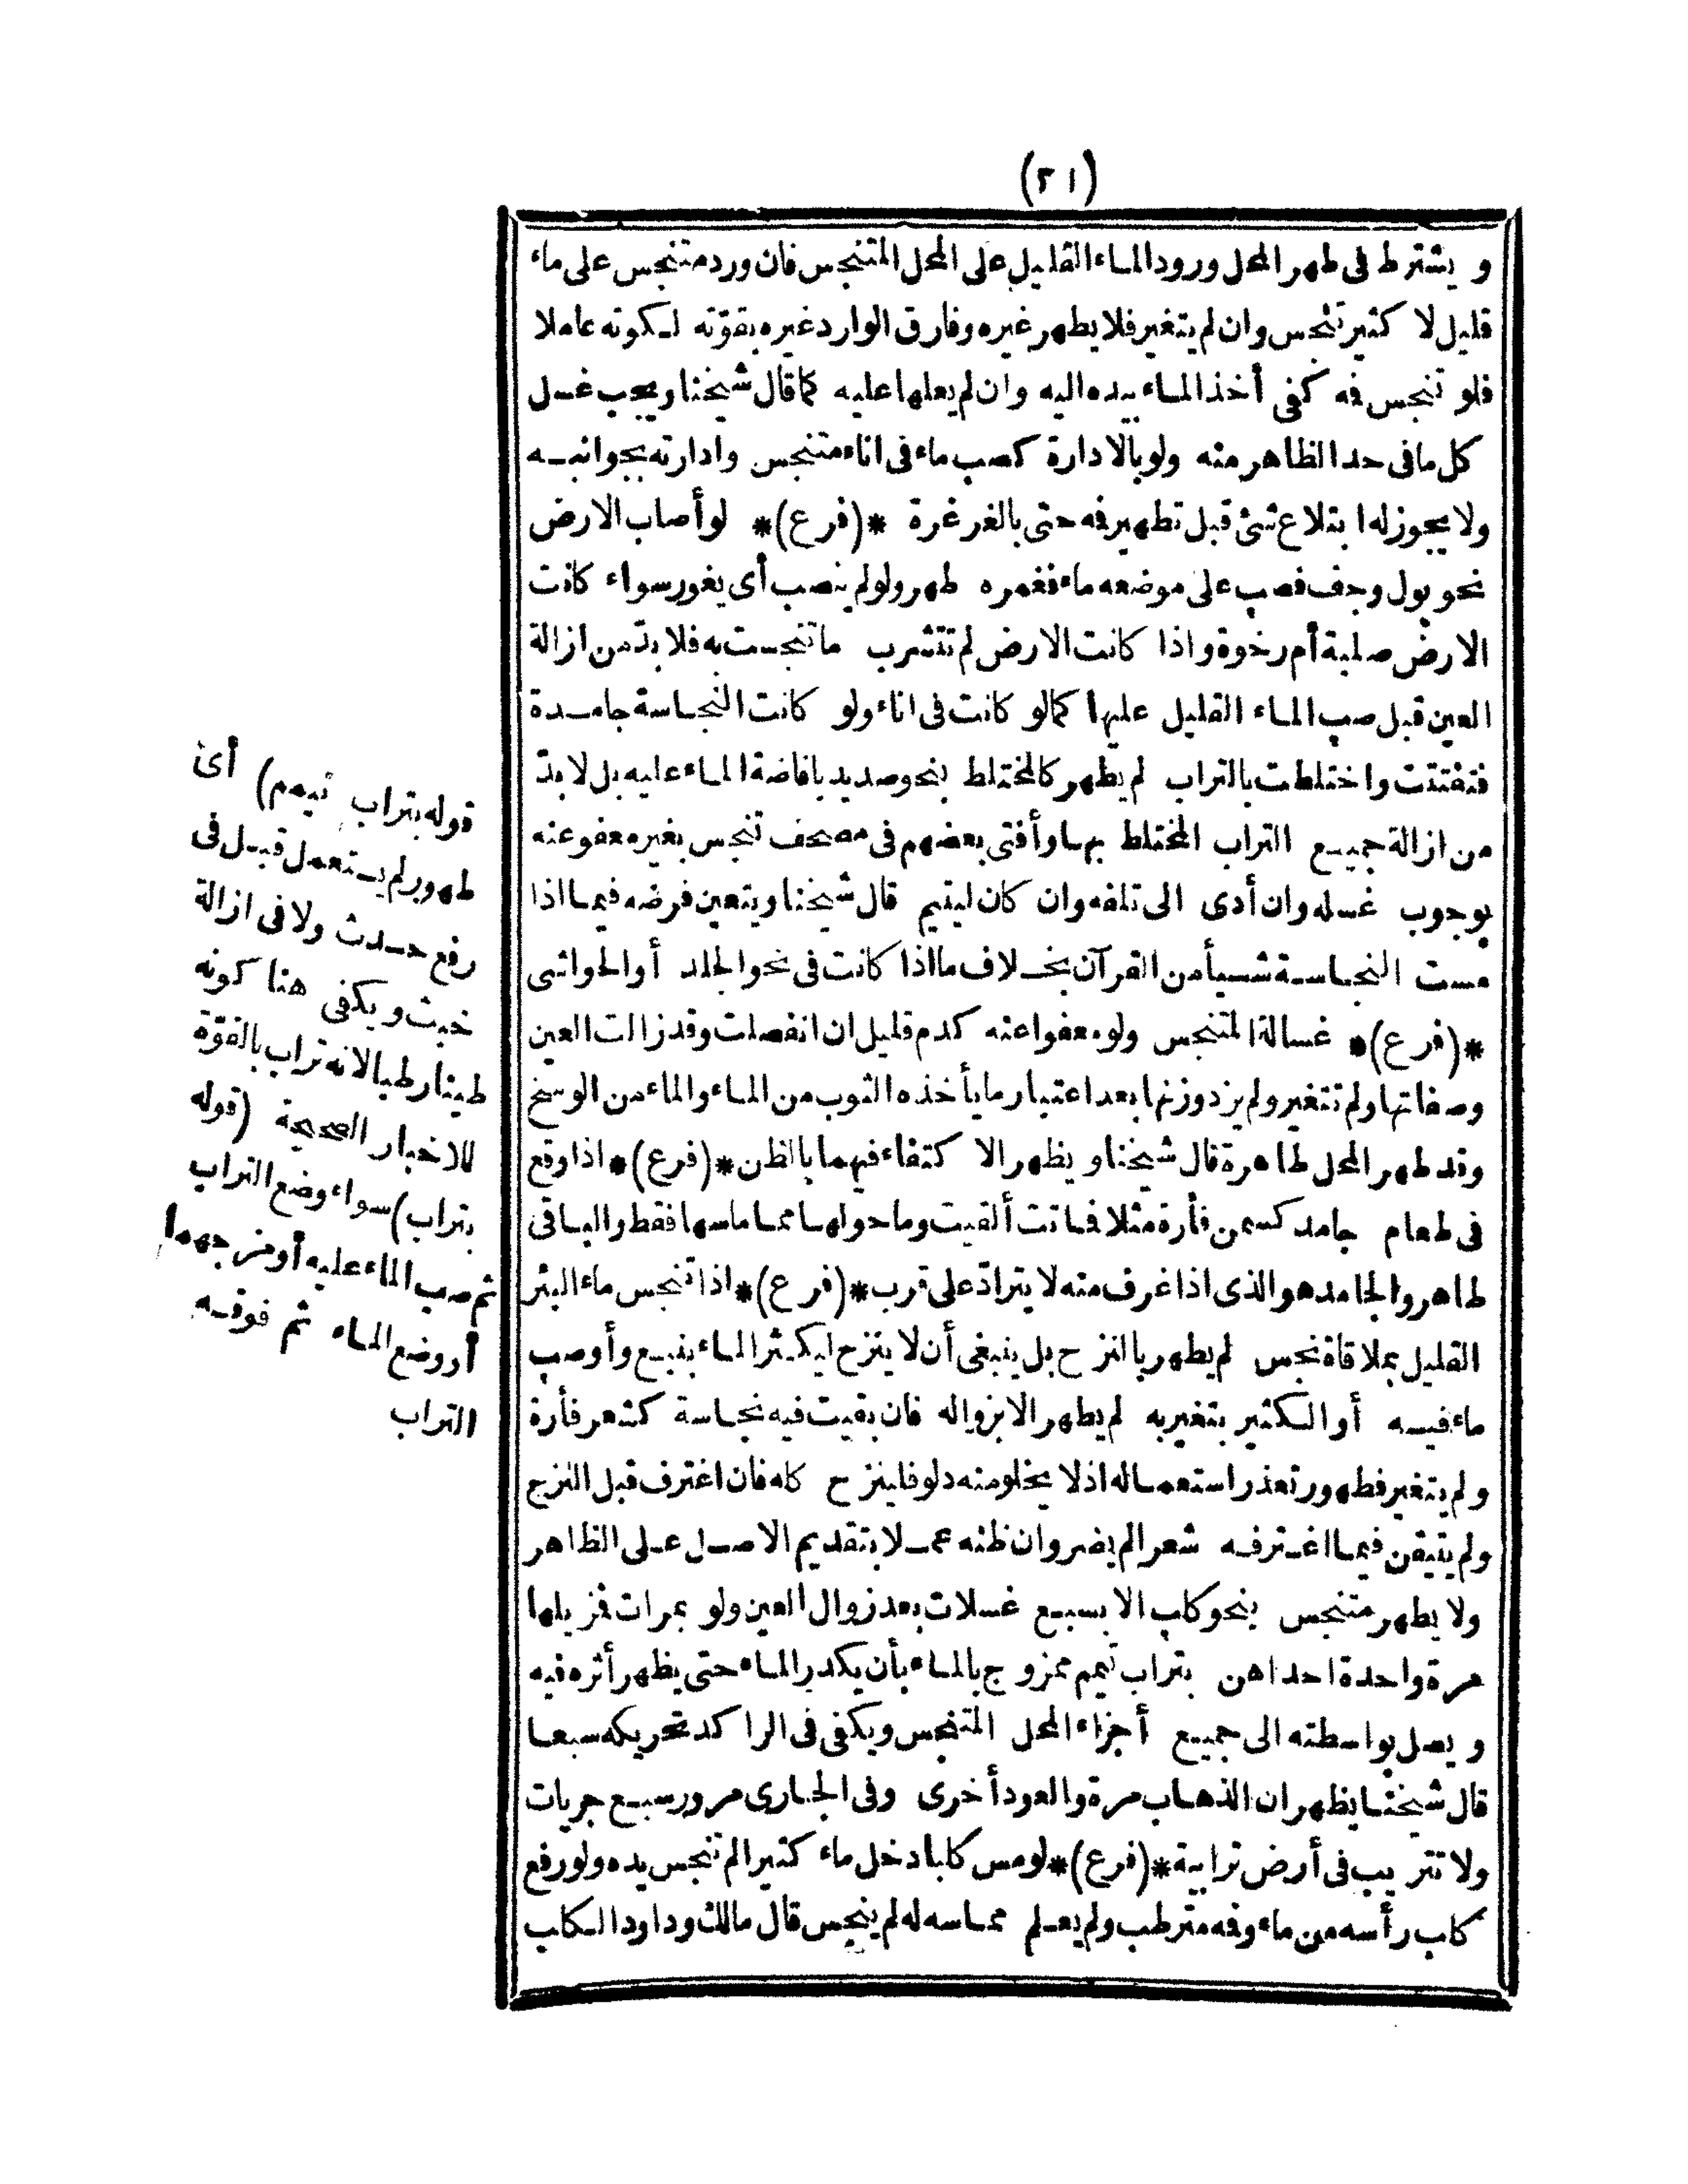 (٢١)
ويشترط فى طهر المحل ورود الماء القليل على المحل المتنجس فان ورد متنجس على ماء
قليل لا كثير تنجس وان لم يتغير فلا يطهر غيره وفارق الوارد غيره بقوّته لكونه عاملا
فلو تنجس فمه كفى أخذ الماء بيده اليه وان لم يعلها عليه كما قال شيخنا ويجب غسل
كل ما فى حد الظاهر منه ولو بالادارة كصب ماء فى اناء متنجس وادارته بجوانبه
ولا يجوز له ابتلاع شئ قبل تطهير فمه حتى بالغرغرة *(فرع)* لو أصاب الارض
نحو بول وجف فصب على موضعه ماء فغمره طهر ولو لم ينصب أى يغور سواء كانت
الارض صلبة أم رخوة واذا كانت الارض لم تتشرب ما تنجست به فلا بدّ من ازالة
العين قبل صب الماء القليل عليها كما لو كانت فى اناء ولو كانت النجاسة جامدة
فتفتتت واختلطت بالتراب لم يطهر كالمختلط بنحو صديد بافاضة الماء عليه بل لا بدّ
من ازالة جميع التراب المختلط بها وأفتى بعضهم فى مصحف تنجس بغير معفو عنه
بوجوب غسله وان أدى الى تلفه وان كان ليتيم قال شيخنا ويتعين فرضه فيما اذا
مست النجاسة شيأ من القرآن بخلاف ما اذا كانت فى نحو الجلد أو الحواشى
*(فرع)* غسالة المتنجس ولو معفوا عنه كدم قليل ان انفصلت وقد زالت العين
وصفاتها ولم تتغير ولم يزد وزنها بعد اعتبار ما يأخذه الثوب من الماء والماء من الوسخ
وقد طهر المحل طاهرة قال شيخنا ويظهر الاكتفاء فيهما بالظن *(فرع)* اذا وقع
فى طعام جامد كسمن فأرة مثلا فماتت ألقيت وما حولها مما ماسها فقط والباقى
طاهر والجامد هو الذى اذا غرف منه لا يترادّ على قرب *(فرع)* اذا تنجس ماء البئر
القليل بملاقاة نجس لم يطهر بالنزح بل ينبغى أن لا ينزح ليكثر الماء بنبع وأو صب
ماء فيه أو الكثير بتغير به لم يطهر الا بزواله فان بقيت فيه نجاسة كشعر فأرة
ولم يتغير فطهور تعذر استعماله اذ لا يخلو منه دلو فلينزح كله فان اغترف قبل النزح
ولم يتيقن فيما اغترفه شعرا لم يضر وان ظنه عملا بتقديم الاصل على الظاهر
ولا يطهر متنجس بنحو كلب الا بسبع غسلات بعد زوال العين ولو بمرات فمزيلها
مرة واحدة احداهن بتراب تيمم ممزوج بالماء بأن يكدر الماء حتى يظهر أثره فيه
ويصل بواسطته الى جميع أجزاء المحل المتنجس ويكفى فى الراكد تحريكه سبعا
قال شيخنا يظهر ان الذهاب مرة والعود أخرى وفى الجارى مرور سبع جريات
ولا تتريب فى أرض ترابية *(فرع)* لو مس كلبا داخل ماء كثير لم تنجس يده ولو رفع
كلب رأسه من ماء وفمه مترطب ولم يعلم مماسه له لم ينجس قال مالك وداود الكلب
قوله بتراب تيمم) أى
طهور لم يستعمل قبل فى
رفع حدث ولا فى ازالة
خبث ويكفى هنا كونه
طينا رطبا لانه تراب بالقوّة
للاخبار الصحيحة (قوله
بتراب) سواء وضع التراب
ثم صب الماء عليه أو مزجهما
أو وضع الماء ثم فوقه
التراب